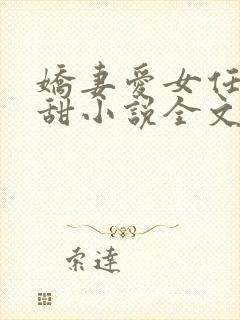 嬌妻愛女任
甜小説全文
索達